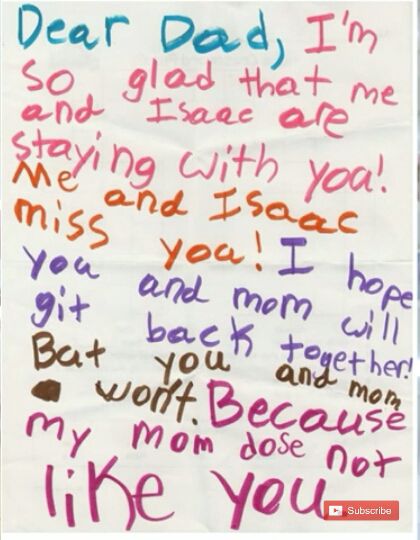 Dear Dad, I'm
so glad that me
and Isaac are
staying with you!
Me and Isaac
miss you! I hope
you and mom will
git back together!
But you and mom
won't. Because
my mom dose not
like you
Subscribe